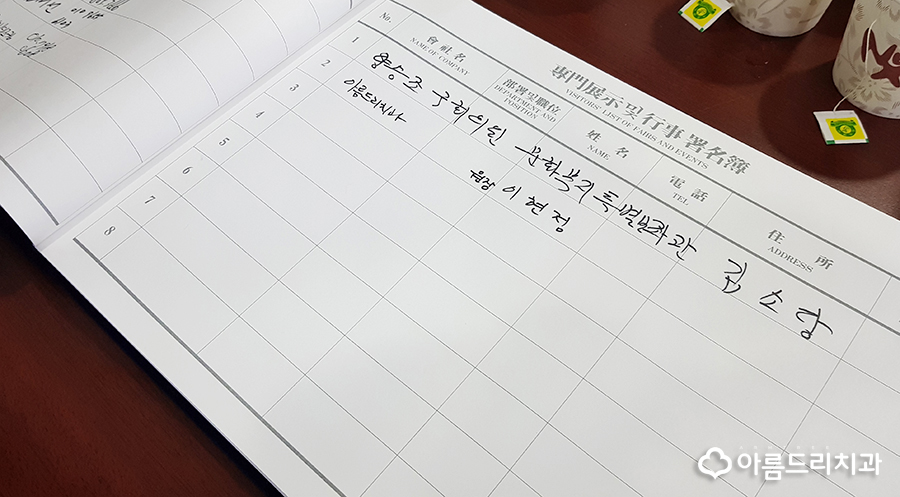 專門展示 및 行事 署名簿
VISITORS' LIST OF FAIRS AND EVENTS
No.
會社名
NAME OF COMPANY
部署 및 職位
DEPARTMENT AND POSITION
姓名
NAME
電話
TEL
住所
ADDRESS
1
양승조 국회의원 문화복지특별보좌관 김소당
2
이름드리치과 원장 이현정
3
4
5
6
7
8
아름드리치과